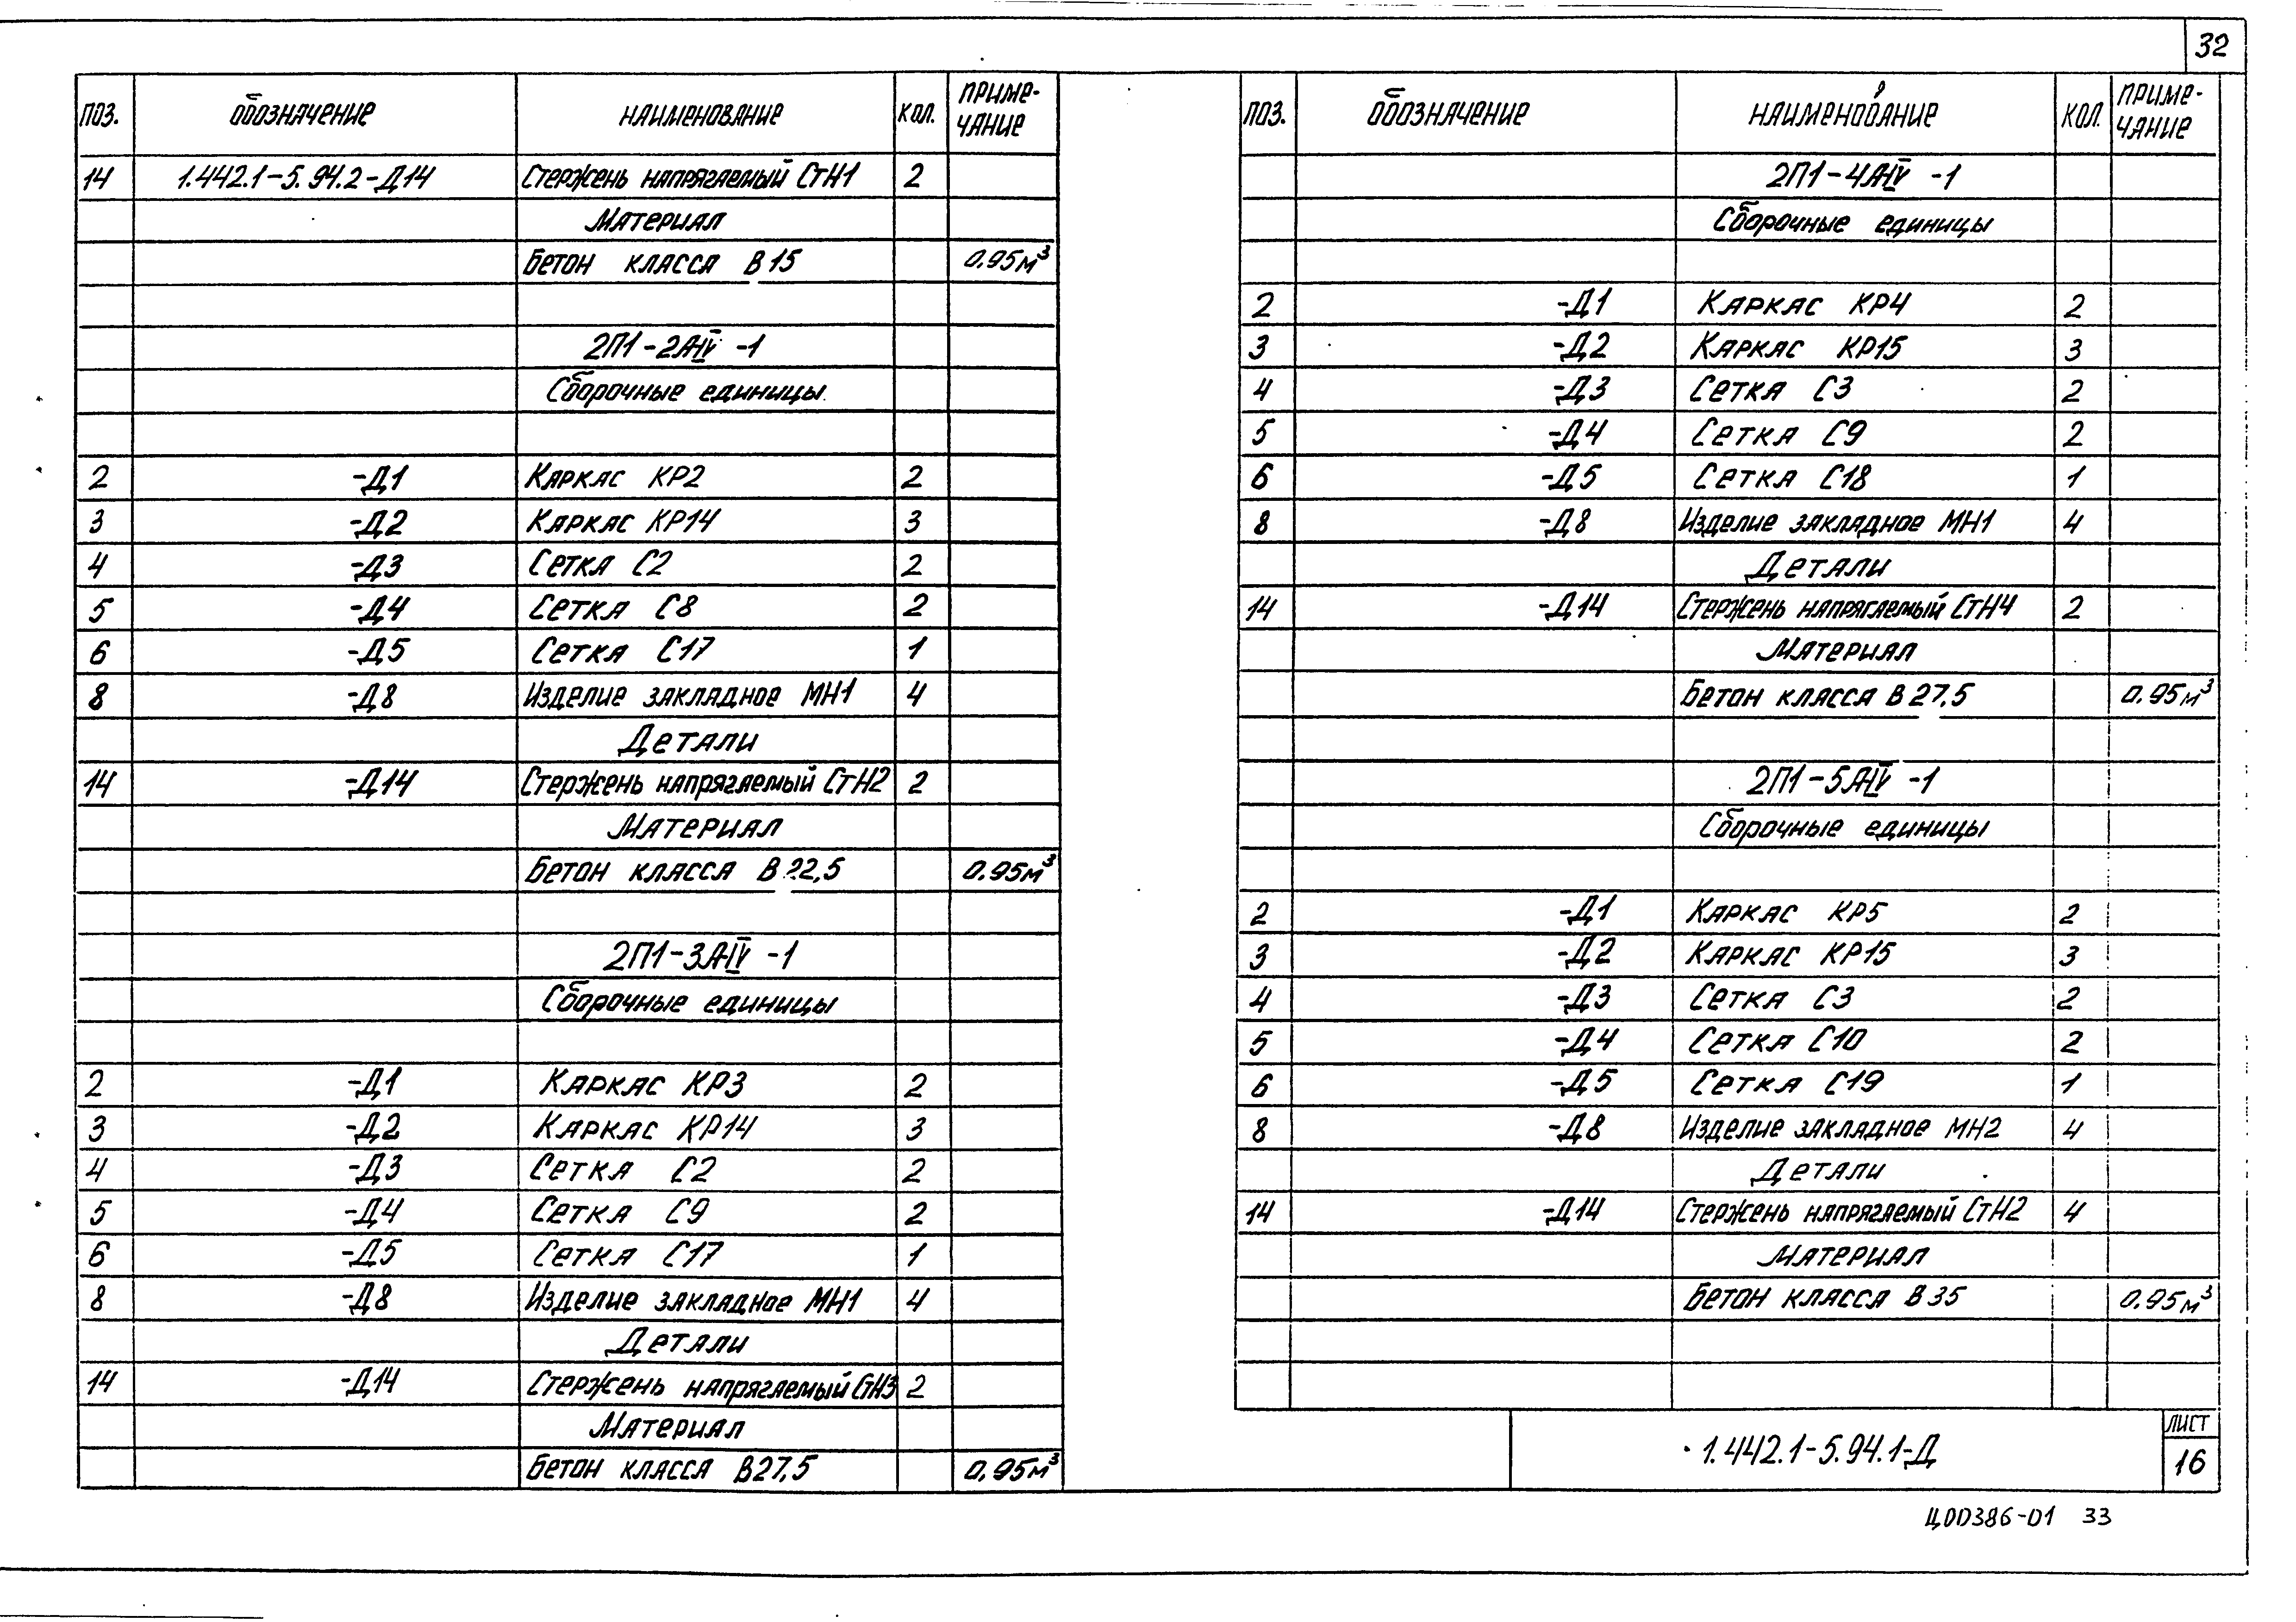 32
ПОЗ. ОБОЗНАЧЕНИЕ НАИМЕНОВАНИЕ КОЛ. ПРИМЕ-
ЧАНИЕ
14 1.442.1-5.94.2-Д14 Стержень напрягаемый СтН1 2
Материал
Бетон класса В15 0.95м³
2П1-2АIV -1
Сборочные единицы
2 -Д1 Каркас КР2 2
3 -Д2 Каркас КР14 3
4 -Д3 Сетка С2 2
5 -Д4 Сетка С8 2
6 -Д5 Сетка С17 1
8 -Д8 Изделие закладное МН1 4
Детали
14 -Д14 Стержень напрягаемый СтН2 2
Материал
Бетон класса В22,5 0.95м³
2П1-3АIV -1
Сборочные единицы
2 -Д1 Каркас КР3 2
3 -Д2 Каркас КР14 3
4 -Д3 Сетка С2 2
5 -Д4 Сетка С9 2
6 -Д5 Сетка С17 1
8 -Д8 Изделие закладное МН1 4
Детали
14 -Д14 Стержень напрягаемый СтН3 2
Материал
Бетон класса В27,5 0.95м³
ПОЗ. ОБОЗНАЧЕНИЕ НАИМЕНОВАНИЕ КОЛ. ПРИМЕ-
ЧАНИЕ
2П1-4АIV -1
Сборочные единицы
2 -Д1 Каркас КР4 2
3 -Д2 Каркас КР15 3
4 -Д3 Сетка С3 2
5 -Д4 Сетка С9 2
6 -Д5 Сетка С18 1
8 -Д8 Изделие закладное МН1 4
Детали
14 -Д14 Стержень напрягаемый СтН4 2
Материал
Бетон класса В27,5 0.95м³
2П1-5АIV -1
Сборочные единицы
2 -Д1 Каркас КР5 2
3 -Д2 Каркас КР15 3
4 -Д3 Сетка С3 2
5 -Д4 Сетка С10 2
6 -Д5 Сетка С19 1
8 -Д8 Изделие закладное МН2 4
Детали
14 -Д14 Стержень напрягаемый СтН2 4
Материал
Бетон класса В35 0.95м³
1.442.1-5.94.1-Д
ЛИСТ
16
Ц00386-01 33